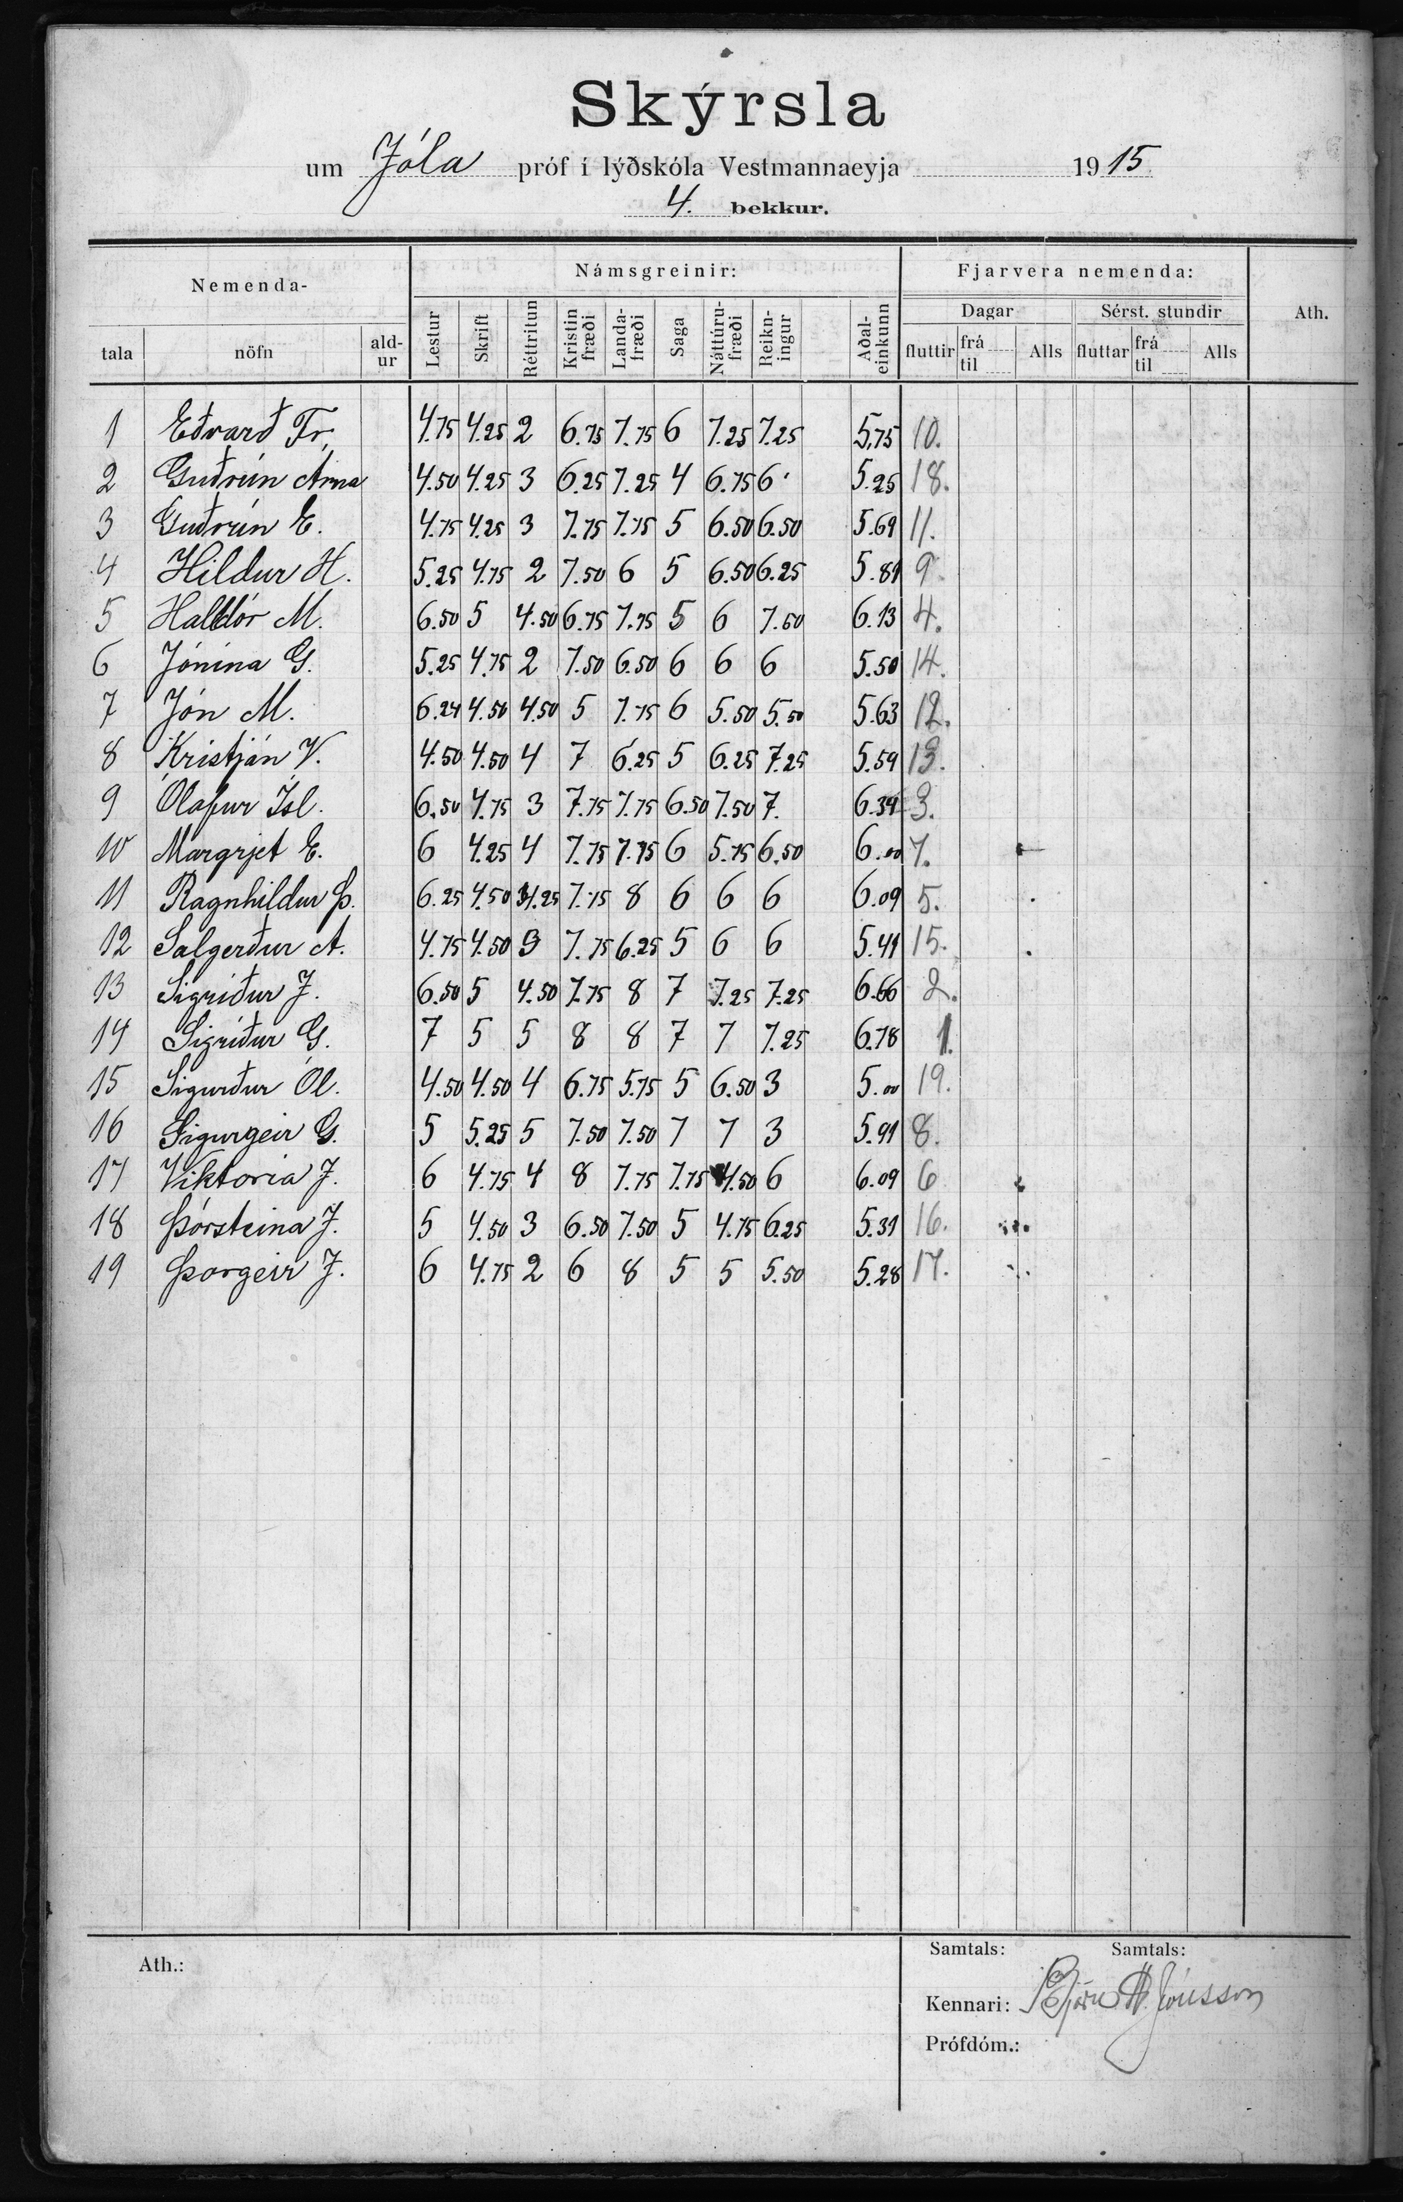 Skýrsla
um Jóla próf í lýðskóla Vestmannaeyja 1915
4. bekkur.
Nemenda- Námsgreinir: Fjarvera nemenda: Ath.
tala nöfn ald-ur Lestur Skrift Réttritun Kristin fræði Landa-fræði Saga Náttúru-fræði Reikn-ingur Aðal-einkunn Dagar Sérst. stundir
fluttir frá til Alls fluttar frá til Alls
1 Eðvarð Fr. 4.75 4.25 2 6.75 7.75 6 7.25 7.25 5.75 10.
2 Guðrún Anna 4.50 4.25 3 6.25 7.25 4 6.75 6 5.25 18.
3 Guðrún E. 4.75 4.25 3 7.75 7.75 5 6.50 6.50 5.69 11.
4 Hildur H. 5.25 4.75 2 7.50 6 5 6.50 6.25 5.81 9.
5 Halldór M. 6.50 5 4.50 6.75 7.75 5 6 7.50 6.13 4.
6 Jónína G. 5.25 4.75 2 7.50 6.50 6 6 6 5.50 14.
7 Jón M. 6.24 4.50 4.50 5 7.75 6 5.50 5.50 5.63 12.
8 Kristján V. 4.50 4.50 4 7 6.25 5 6.25 7.25 5.59 13.
9 Ólafur Ísl. 6.50 4.75 3 7.75 7.75 6.50 7.50 7. 6.34 3.
10 Margrjet E. 6 4.25 4 7.75 7.75 6 5.75 6.50 6.00 7.
11 Ragnhildur Þ. 6.25 4.50 4.25 7.75 8 6 6 6 6.09 5.
12 Salgerður A. 4.75 4.50 3 7.75 6.25 5 6 6 5.41 15.
13 Sigríður J. 6.50 5 4.50 7.75 8 7 7.25 7.25 6.66 2.
14 Sigríður G. 7 5 5 8 8 7 7 7.25 6.78 1.
15 Sigurður Ól. 4.50 4.50 4 6.75 5.75 5 6.50 3 5.00 19.
16 Sigurgeir G. 5 5.25 5 7.50 7.50 7 7 3 5.91 8.
17 Viktoria J. 6 4.75 4 8 7.75 7.75 4.50 6 6.09 6
18 Þórsteina J. 5 4.50 3 6.50 7.50 5 4.75 6.25 5.31 16.
19 Þorgeir J. 6 4.75 2 6 8 5 5 5.50 5.28 17.
Ath.: Samtals: Samtals:
Kennari: Björn H. Jónsson
Prófdóm.: